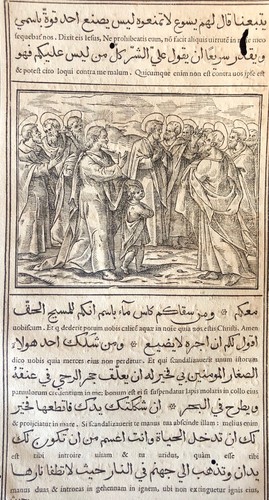 يتبعنا قال لهم يسوع لا تمنعوه ليس يصنع احد قوة باسمي
sequebat nos. Dixit eis Iesus, Ne prohibeatis eum, nō facit aliquis uirtutē in noīe meo
ويقدر سريعا ان يقول علي الشر كل من ليس عليكم فهو
& potest cito loqui contra me malum. Quicumque enim non est contra uos ipse est
معكم * ومن سقاكم كاس ماء باسم انكم للمسيح الحق
uobiscum. Et q dederit potum uobis calicē aquæ in noīe quia uos estis Christi. Amen
اقول لكم ان اجره لا يضيع * ومن شكك احد هولاء
dico uobis quia merces eius non perdetur. Et qui scandalizauerit unum istorum
الصغار المومنين بي خير له ان يعلق حجر الرحي في عنقه
credentium in me: bonum est ei si suspendatur lapis molaris in collo eius
ويطرح في البحر * ان شككتك يدك فاقطعها خير
& proijciatur in mare. Si scandalizauerit te manus tua abscinde illam: melius enim
لك ان تدخل الحياة وانت اعسم من ان تكون لك
est tibi introire uitam & tu aridus, quam esse tibi
يدان وتذهب الى جهنم في النار حيث لا تطفا نارها
manus duas & introeas in gehennam in ignem, ubi non extinguetur ignis eius,